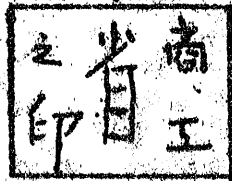 商工
省
之印